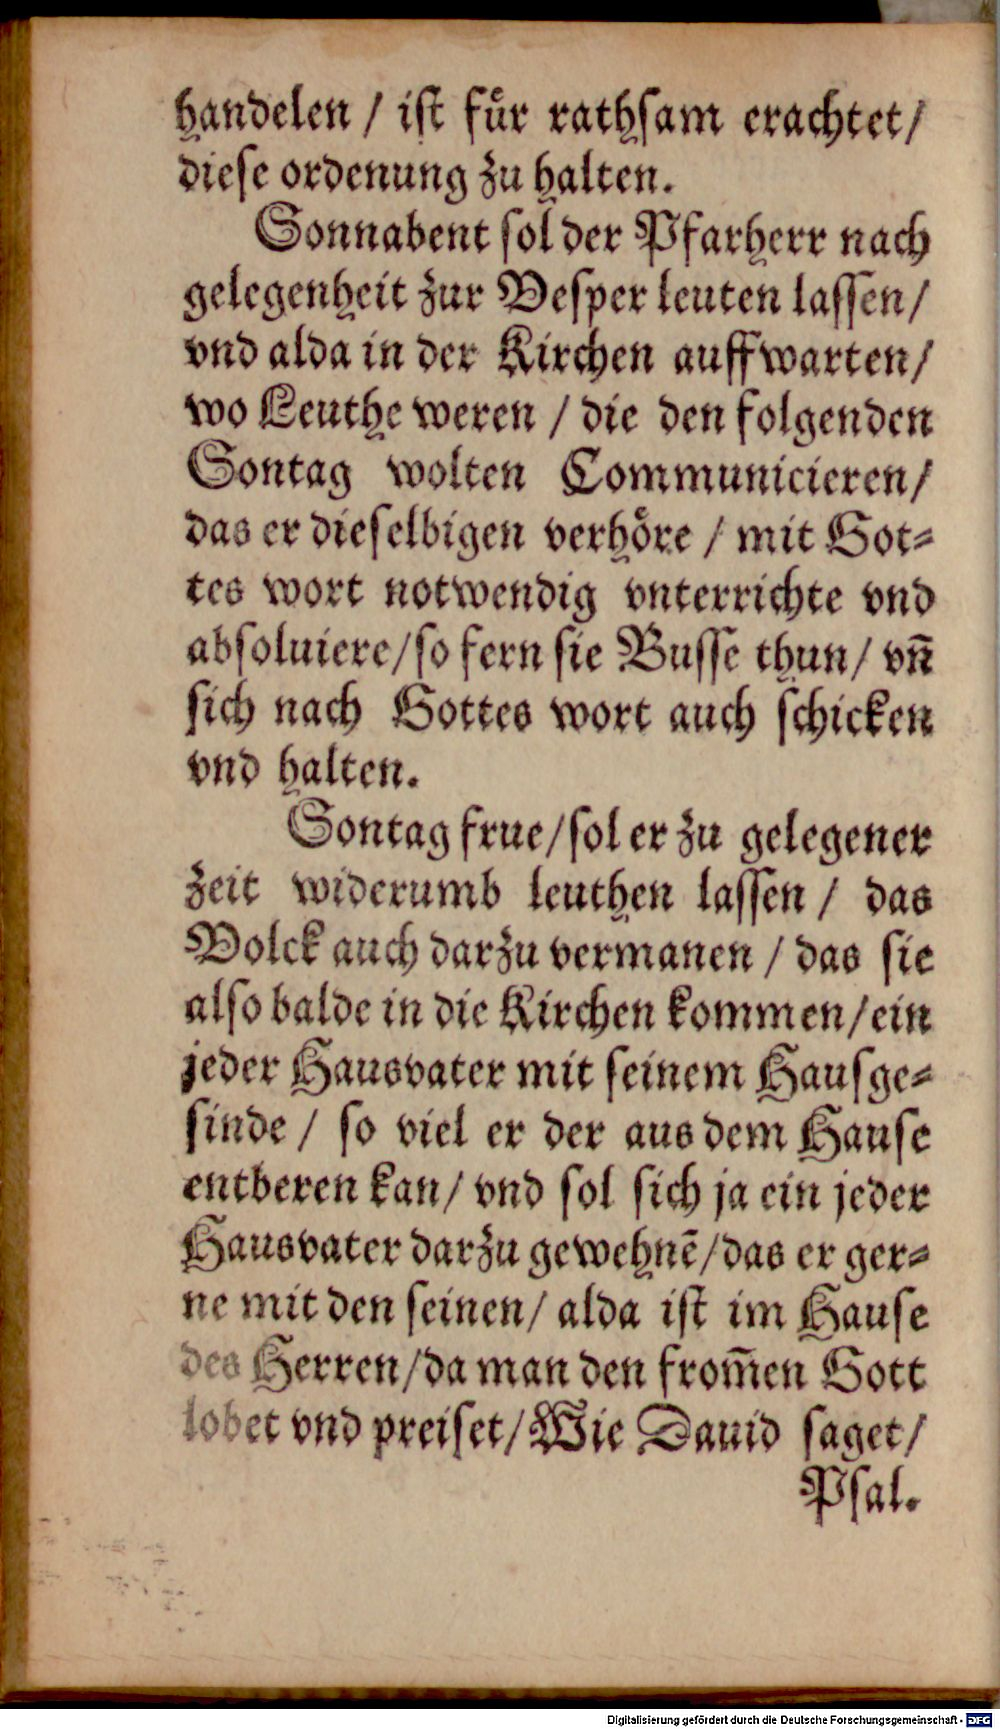 handelen / iſt fuͤr rathſam erachtet/
dieſe ordenung zu halten.
Sonnabent ſol der Pfarherr nach
gelegenheit zur Veſper leuten laſſen/
vnd alda in der Kirchen auffwarten/
wo Leuthe weren / die den folgenden
Sontag wolten Communicieren/
das er dieſelbigen verhoͤre / mit Got⸗
tes wort notwendig vnterrichte vnd
abſoluiere/ſo fern ſie Buſſe thun/ vñ
ſich nach Gottes wort auch ſchicken
vnd halten.
Sontag frue/ſol er zu gelegener
zeit widerumb leuthen laſſen / das
Volck auch darzu vermanen / das ſie
alſo balde in die Kirchen kommen/ein
jeder Hausvater mit ſeinem Hausge⸗
ſinde / ſo viel er der aus dem Hauſe
entberen kan/ vnd ſol ſich ja ein jeder
Hausvater darzu gewehnẽ/das er ger⸗
ne mit den ſeinen/ alda iſt im Hauſe
des Herren/da man den from̃en Gott
lobet vnd preiſet/Wie Dauid ſaget/
Pſal.
Digitalisierung gefördert durch die Deutsche Forschungsgemeinschaft - DFG